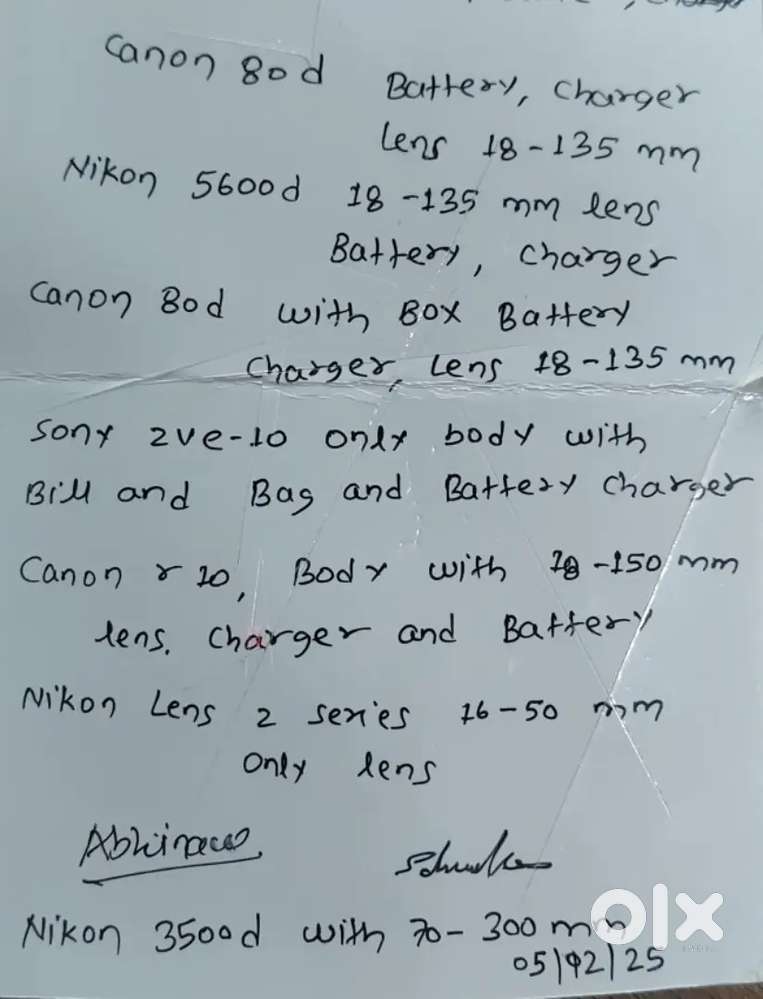 Canon 80d
Battery, charger
lens 18-135 mm
Nikon 5600d 18-135 mm lens
Battery, charger
Canon 80d with BOX Battery
charger, lens 18-135 mm
Sony zve-10 only body with
Bill and Bag and Battery charger
Canon r 10, Body with 18-150 mm
lens, charger and Battery
Nikon Lens z series 16-50 mm
only lens
Abhinaw
Nikon 3500d with 70-300 mm
05/12/25
olx